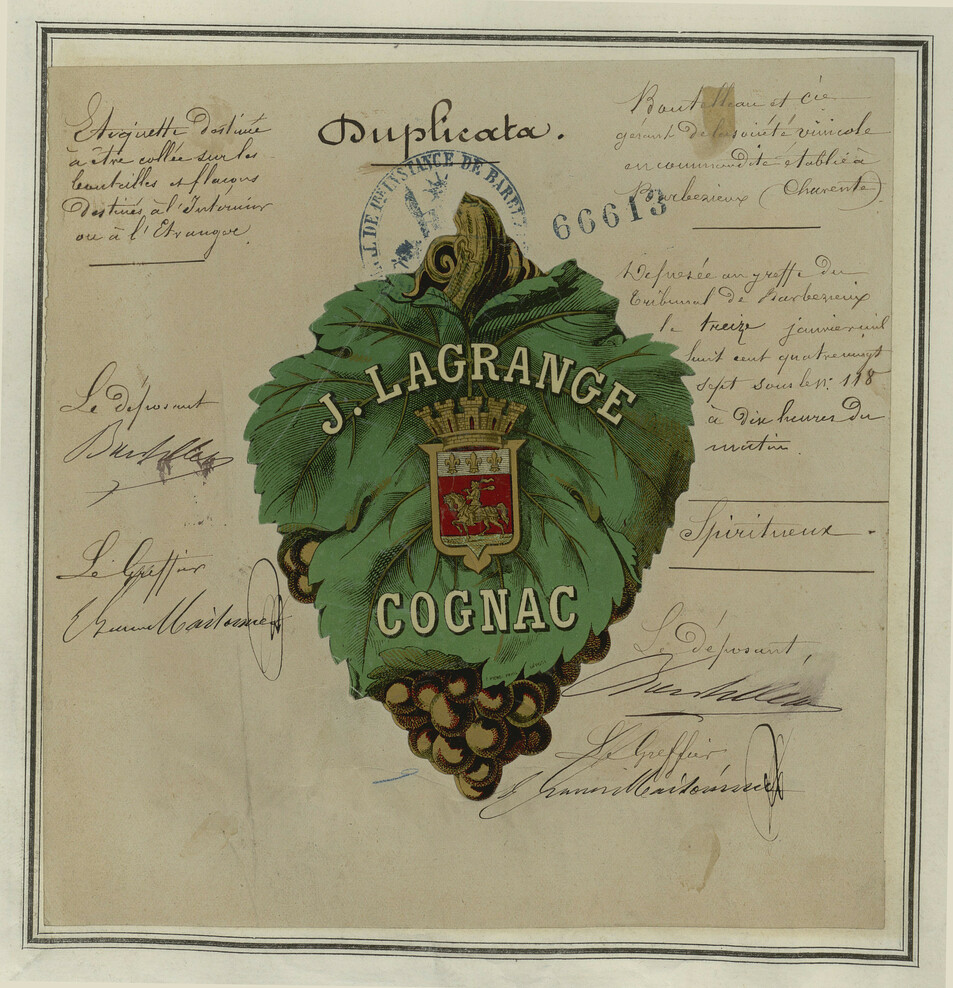 Duplicata.
Etiquette destinée
à être collée sur les
bouteilles et flacons
destinés à l'Intérieur
ou à l'Etranger
Le déposant
Le Greffier
T. DE 1ÈRE INSTANCE DE BARBEZ
66613
J. LAGRANGE
COGNAC
Boutelleau et Cie
gérant de la société vinicole
en commandite établie à
Barbezieux (Charente)
Déposée au greffe du
Tribunal de Barbezieux
le treize janvier mil
huit cent quatre vingt
sept sous le n: 118
à dix heures du
matin.
Spiritueux.
Le déposant,
Le Greffier